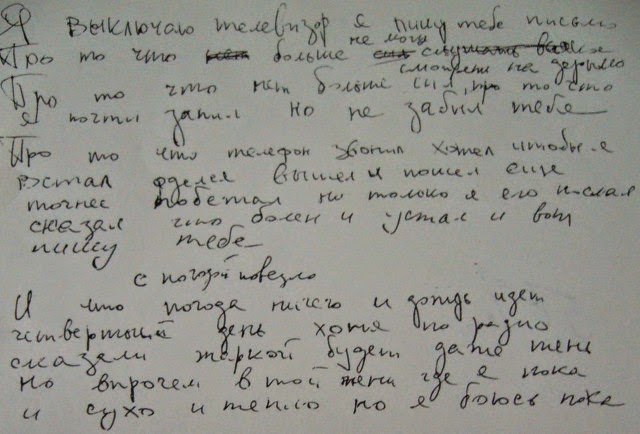 Я выключаю телевизор я пишу тебе письмо
не могу
Про то что больше
смотреть на дерьмо
Про то что нет больше сил про то что
я почти запил но не забыл тебя
Про то что телефон звонил хотел чтобы я
встал оделся вышел и пошел еще
точнее побежал но только я его послал
сказал что болен и устал и
пишу тебе
с погодой повезло
И что погода ничего и дождь идет
четвертый день хотя по радио
сказали жаркой будет даже тень
Но впрочем в той тени где я пока
и сухо и тепло но я боюсь пока